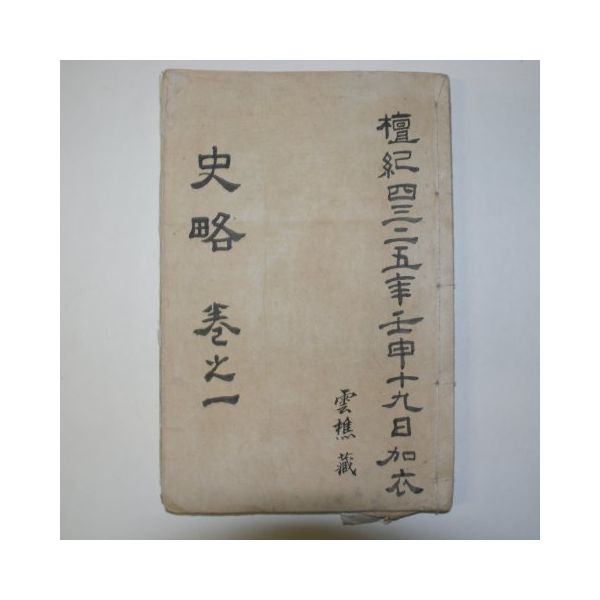 檀紀四三二五年壬申十九日加衣
雲樵藏
史略 卷之一